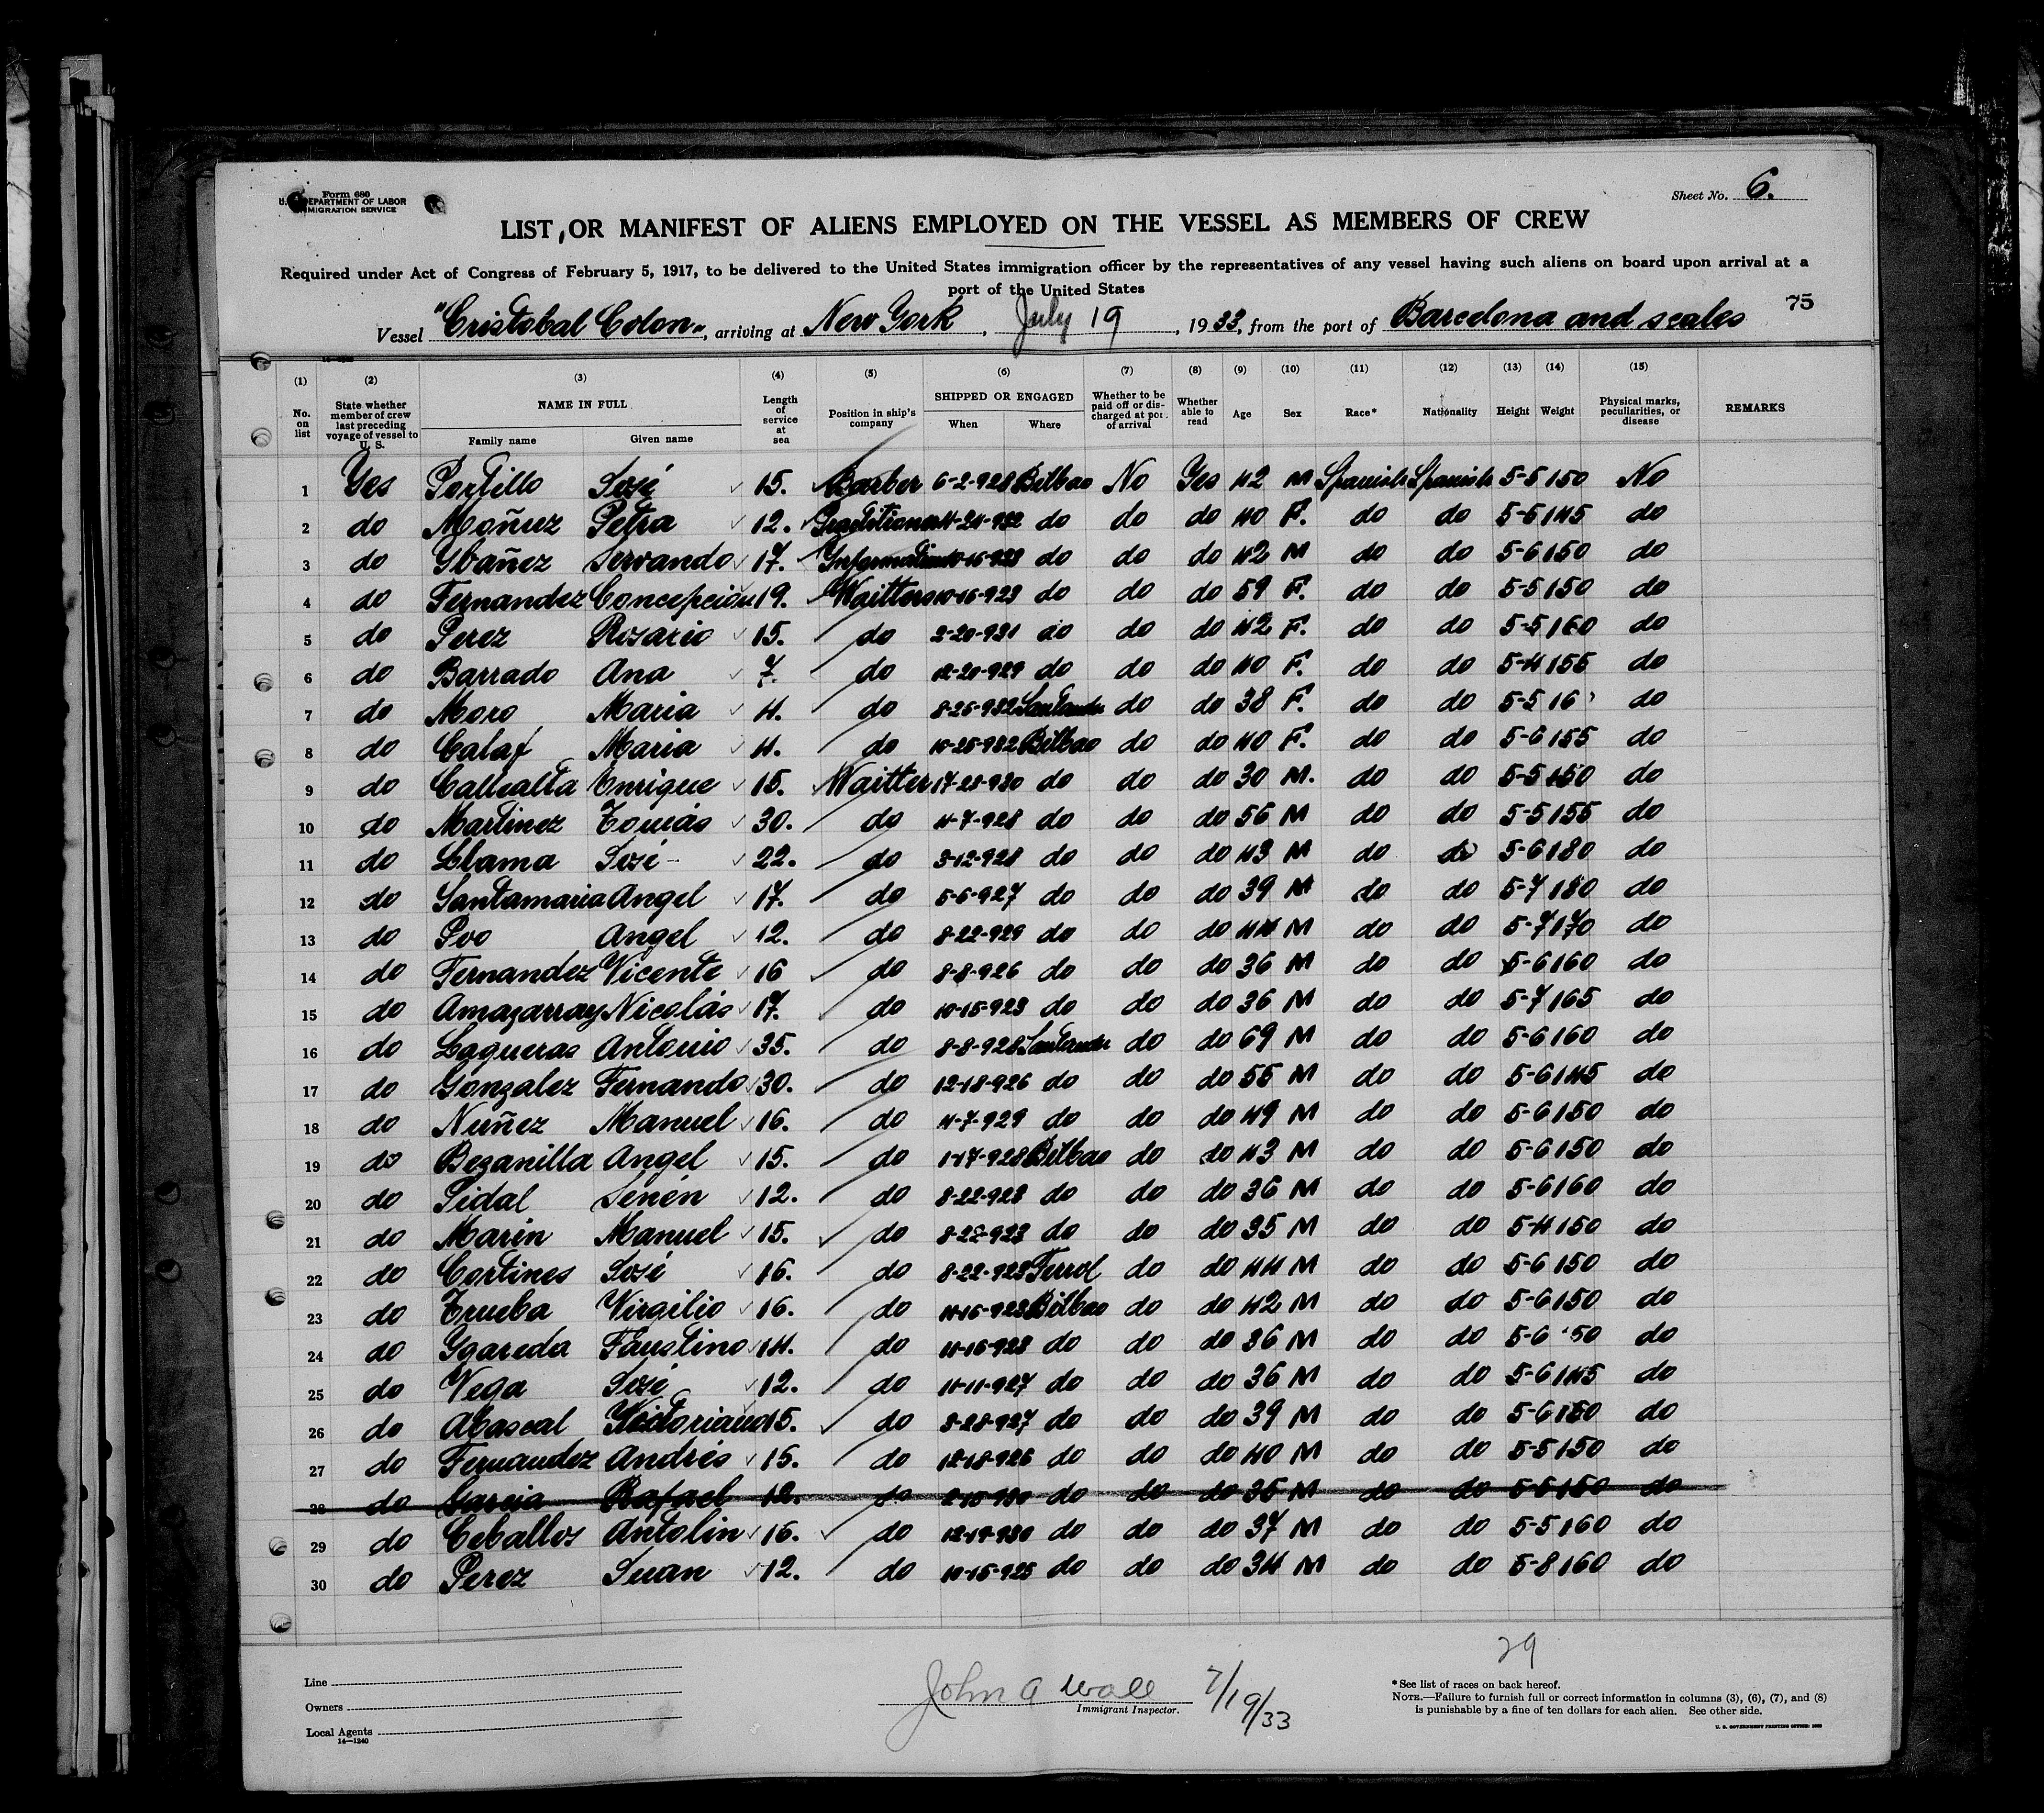 Form 680
U. S. DEPARTMENT OF LABOR
IMMIGRATION SERVICE
Sheet No. 6.
LIST, OR MANIFEST OF ALIENS EMPLOYED ON THE VESSEL AS MEMBERS OF CREW
Required under Act of Congress of February 5, 1917, to be delivered to the United States immigration officer by the representatives of any vessel having such aliens on board upon arrival at a
port of the United States
75
Vessel "Cristobal Colon", arriving at New York, July 19, 1933, from the port of Barcelona and scales
(1) (2) (3) (4) (5) (6) (7) (8) (9) (10) (11) (12) (13) (14) (15)
No. on list State whether member of crew last preceding voyage of vessel to U. S. NAME IN FULL Family name Given name Length of service at sea Position in ship's company SHIPPED OR ENGAGED When Where Whether to be paid off or discharged at port of arrival Whether able to read Age Sex Race* Nationality Height Weight Physical marks, peculiarities, or disease REMARKS
1 Yes Portillo José 15. Barber 6-2-928 Bilbao No Yes 42 M Spanish Spanish 5-5 150 No
2 do Moñuz Petra 12. 11-24-932 do do do 40 F. do do 5-6 145 do
3 do Ybañez Servando 17. do do do 42 M do do 5-6 150 do
4 do Fernandez Concepción 19. Waitters 10-16-923 do do do 59 F. do do 5-5 150 do
5 do Perez Rosario 15. do 2-20-931 do do do 42 F. do do 5-5 160 do
6 do Barrado Ana 7. do 12-20-929 do do do 40 F. do do 5-4 155 do
7 do Moro Maria 4. do 8-25-932 Santander do do 38 F. do do 5-5 16 do
8 do Calaf Maria 4. do 10-25-932 Bilbao do do 40 F. do do 5-6 155 do
9 do Callealta Enrique 15. Waitter 17-28-930 do do do 30 M. do do 5-5 150 do
10 do Martinez Tomás 30. do 4-7-928 do do do 56 M do do 5-5 155 do
11 do Llama José 22. do 3-12-928 do do do 43 M do do 5-6 180 do
12 do Santamaria Angel 17. do 5-6-927 do do do 39 M do do 5-7 180 do
13 do Poo Angel 12. do 8-22-929 do do do 44 M do do 5-7 170 do
14 do Fernandez Vicente 16 do 8-8-926 do do do 36 M do do 5-6 160 do
15 do Amazarray Nicolás 17. do 10-15-923 do do do 36 M do do 5-7 165 do
16 do Laqueras Antonio 35. do 8-8-928 Santander do do 69 M do do 5-6 160 do
17 do Gonzalez Fernando 30. do 12-18-926 do do do 55 M do do 5-6 145 do
18 do Nuñez Manuel 16. do 4-7-929 do do do 49 M do do 5-6 150 do
19 do Bezanilla Angel 15. do 1-17-928 Bilbao do do 43 M do do 5-6 150 do
20 do Pidal Senén 12. do 8-22-928 do do do 36 M do do 5-6 160 do
21 do Marin Manuel 15. do 8-22-923 do do do 35 M do do 5-4 150 do
22 do Cortines José 16. do 8-22-923 Ferrol do do 44 M do do 5-6 150 do
23 do Trueba Virgilio 16. do 11-16-923 Bilbao do do 42 M do do 5-6 150 do
24 do Ygareda Faustino 14. do 11-16-928 do do do 36 M do do 5-6 50 do
25 do Vega José 12. do 11-11-927 do do do 36 M do do 5-6 145 do
26 do Abascal Victoriano 15. do 8-28-927 do do do 39 M do do 5-6 150 do
27 do Fernandez Andrés 15. do 12-18-926 do do do 40 M do do 5-5 150 do
28 do Garcia Rafael 12. do 2-15-930 do do do 35 M do do 5-5 150 do
29 do Ceballos Antolin 16. do 12-19-930 do do do 37 M do do 5-5 160 do
30 do Perez Juan 12. do 10-15-925 do do do 34 M do do 5-8 160 do
29
Line
Owners
Local Agents
14—1240
John A Wall 7/19/33
Immigrant Inspector.
*See list of races on back hereof.
NOTE.—Failure to furnish full or correct information in columns (3), (6), (7), and (8)
is punishable by a fine of ten dollars for each alien. See other side.